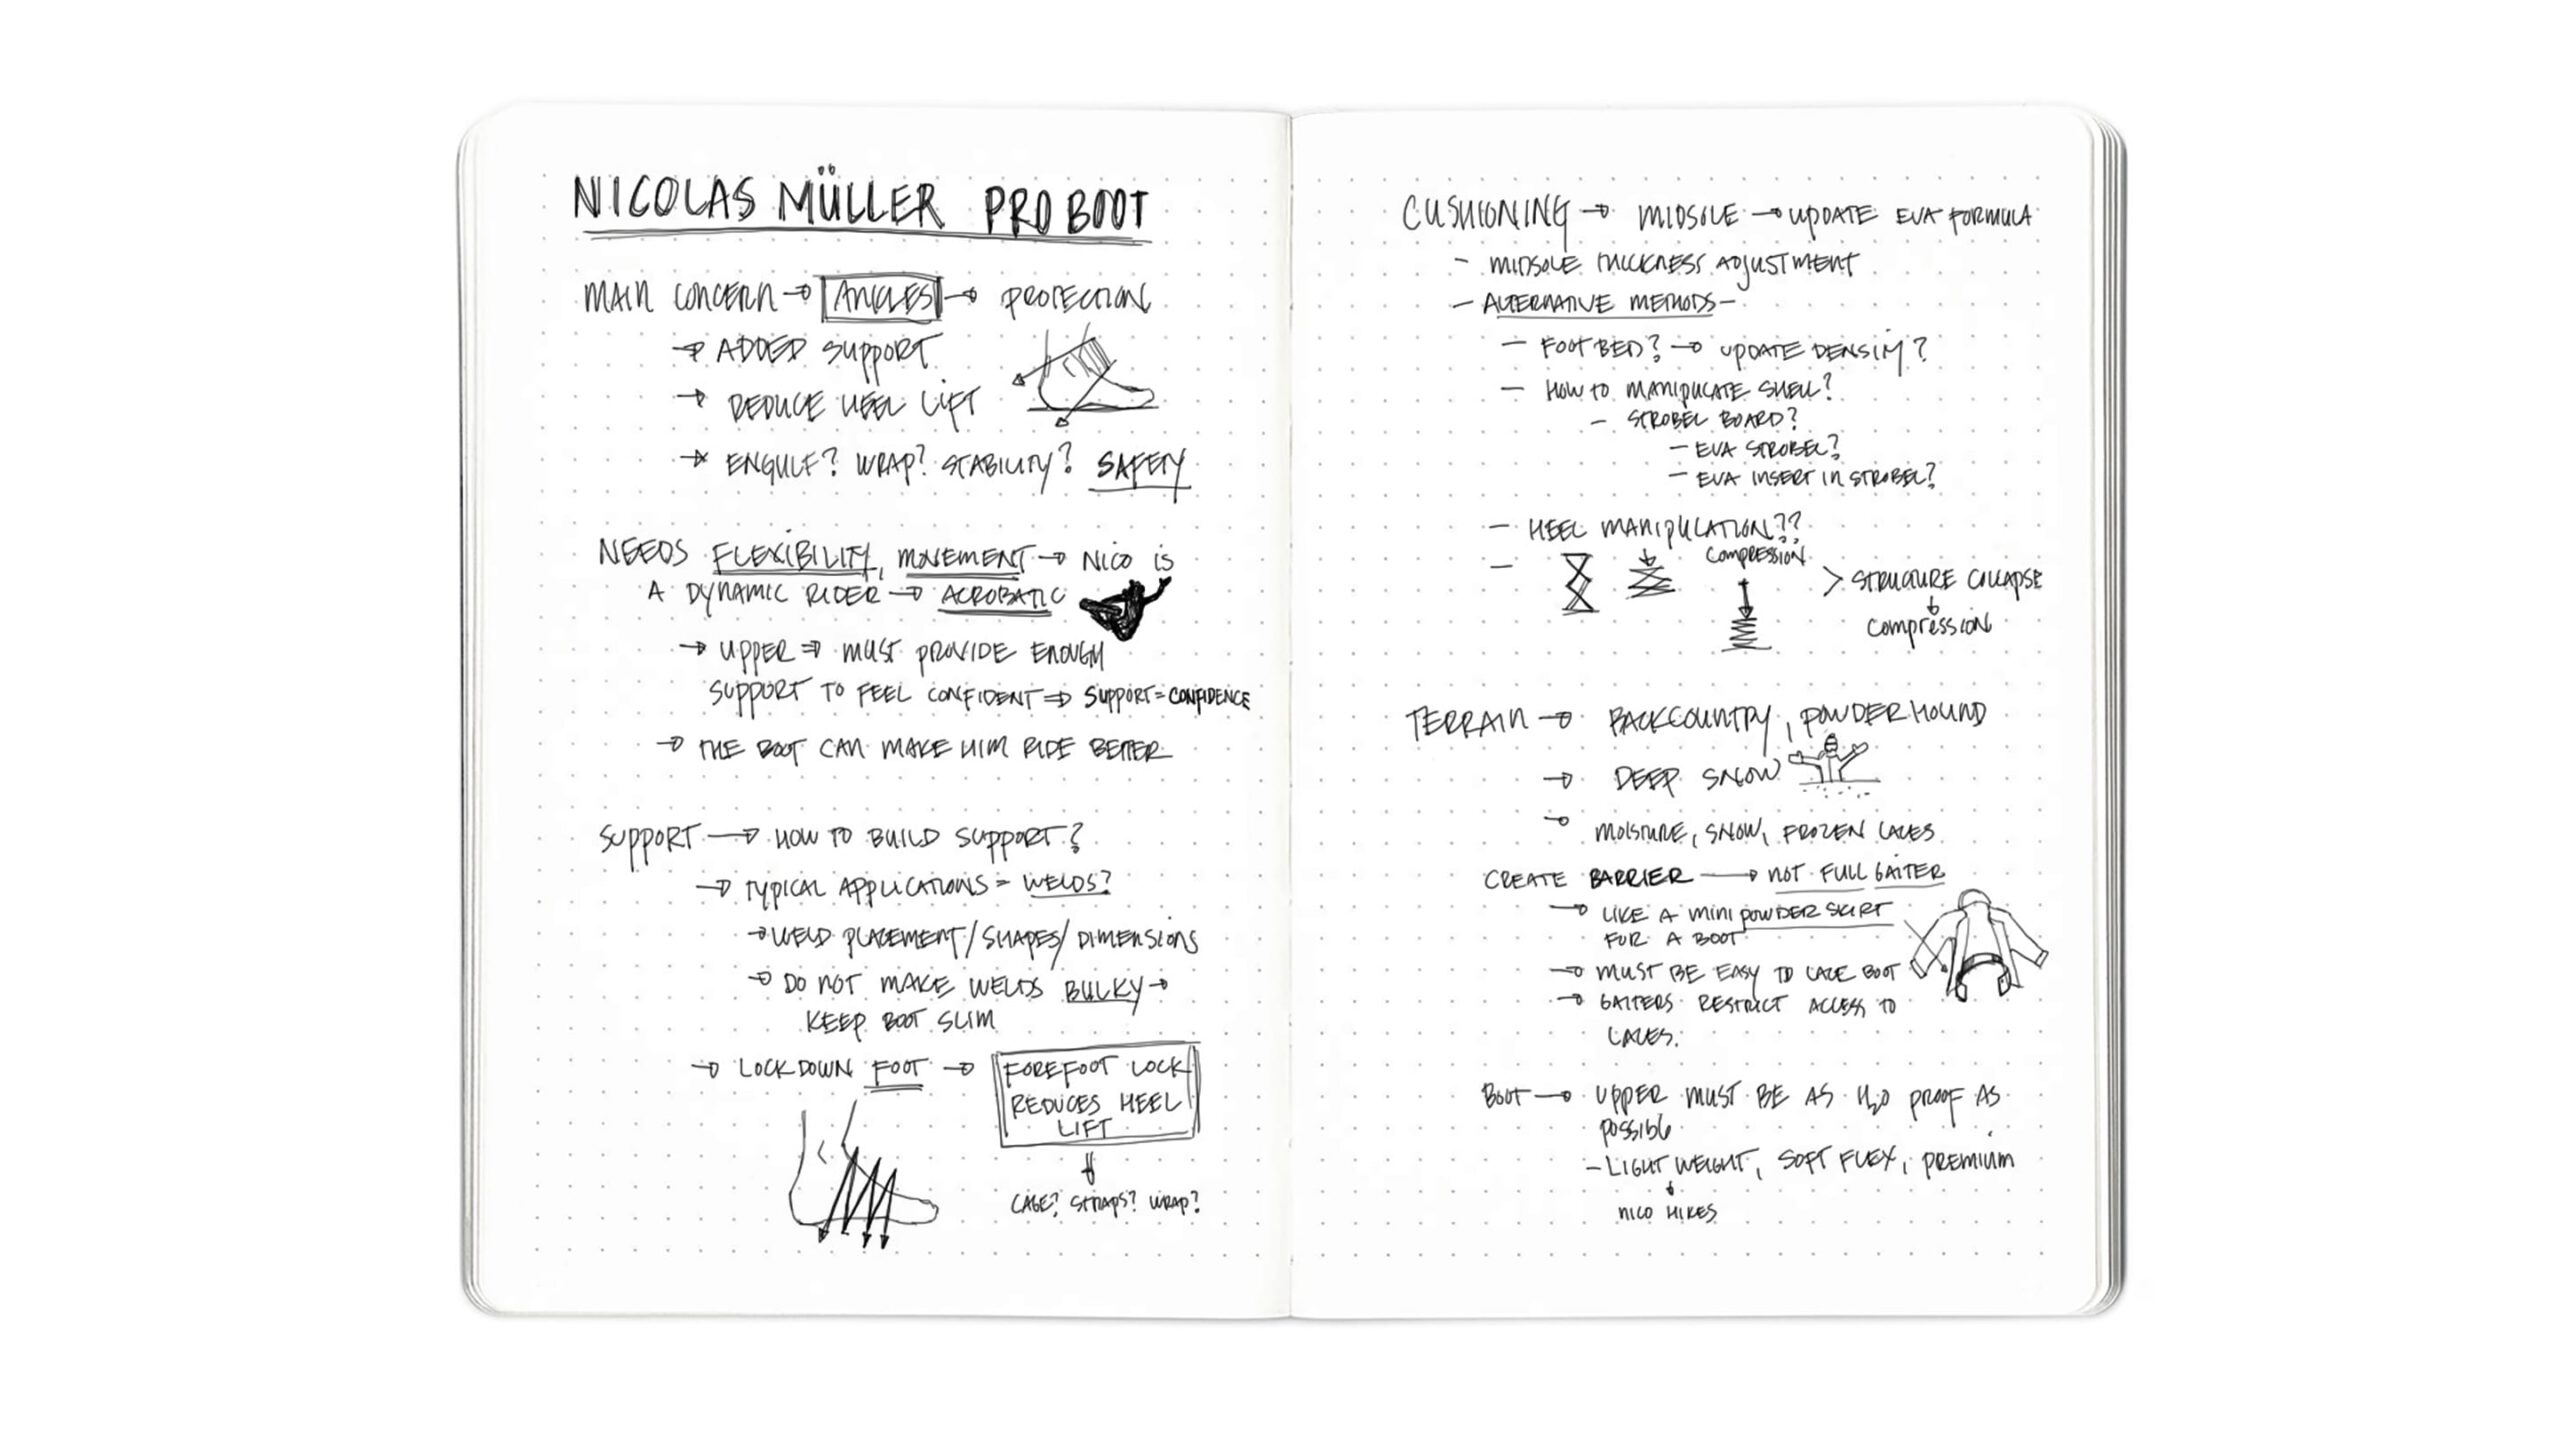 NICOLAS MÜLLER PRO BOOT
MAIN CONCERN → ANKLES → PROTECTION
→ ADDED SUPPORT
→ REDUCE HEEL LIFT
→ ENGULF? WRAP? STABILITY? SAFETY
NEEDS FLEXIBILITY, MOVEMENT → NICO IS
A DYNAMIC RIDER → ACROBATIC
→ UPPER ⇒ MUST PROVIDE ENOUGH
SUPPORT TO FEEL CONFIDENT ⇒ SUPPORT = CONFIDENCE
→ THE BOOT CAN MAKE HIM RIDE BETTER
SUPPORT → HOW TO BUILD SUPPORT?
→ TYPICAL APPLICATIONS = WELDS?
→ WELD PLACEMENT/SHAPES/DIMENSIONS
→ DO NOT MAKE WELDS BULKY →
KEEP BOOT SLIM
→ LOCKDOWN FOOT →
FOREFOOT LOCK
REDUCES HEEL
LIFT
CAGE? STRAPS? WRAP?
CUSHIONING → MIDSOLE → UPDATE EVA FORMULA
- MIDSOLE THICKNESS ADJUSTMENT
- ALTERNATIVE METHODS -
- FOOTBED? → UPDATE DENSITY?
- HOW TO MANIPULATE SHELL?
- STROBEL BOARD?
- EVA STROBEL?
- EVA INSERT IN STROBEL?
- HEEL MANIPULATION??
COMPRESSION
> STRUCTURE COLLAPSE
COMPRESSION
TERRAIN → BACKCOUNTRY, POWDER HOUND
→ DEEP SNOW
→ MOISTURE, SNOW, FROZEN LACES
CREATE BARRIER → NOT FULL GAITER
→ LIKE A MINI POWDER SKIRT
FOR A BOOT
→ MUST BE EASY TO LACE BOOT
→ GAITERS RESTRICT ACCESS TO
LACES.
BOOT → UPPER MUST BE AS H2O PROOF AS
POSSIBLE
- LIGHT WEIGHT, SOFT FLEX, PREMIUM
NICO HIKES